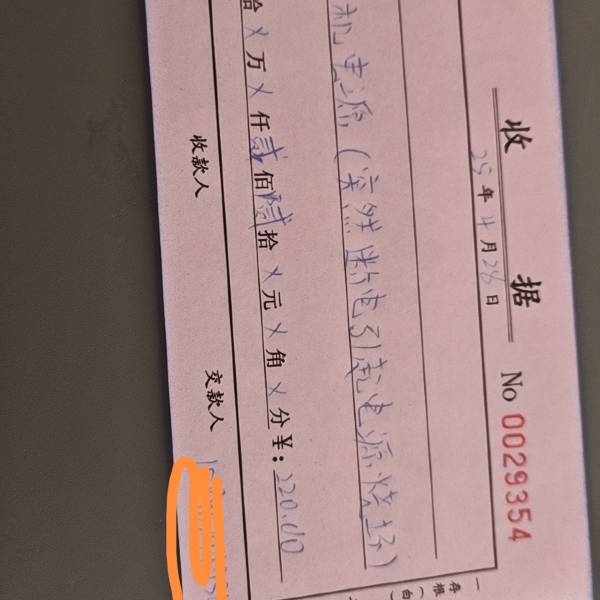 收 据 No 0029354
25年4月28日
机电源(突然断电引起电源烧坏)
拾X万X仟贰佰贰拾X元X角X分¥:220.00
收款人 交款人
一存根(白)